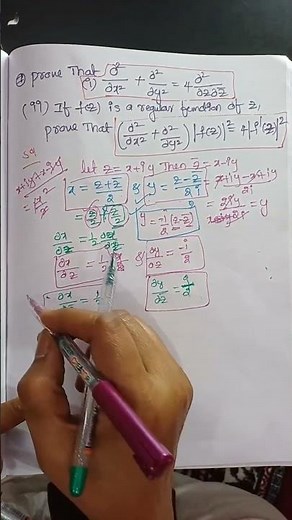 ② prove That (i) ∂²/∂x² + ∂²/∂y² = 4 ∂²/∂z∂z̄
(ii) If f(z) is a regular function of z,
prove That (∂²/∂x² + ∂²/∂y²) |f(z)|² = 4|f'(z)|²
let z = x+iy Then z̄ = x-iy
x = z+z̄/2 & y = z-z̄/2i
x+iy-x+iy/2i
= z/2 + z̄/2
y = -i/2 (z-z̄)
= 2iy/2i = y
∂x/∂z = 1/2
∂x/∂z = 1/2 & ∂y/∂z = -i/2
∂x/∂z̄ = 1/2
∂y/∂z̄ = i/2